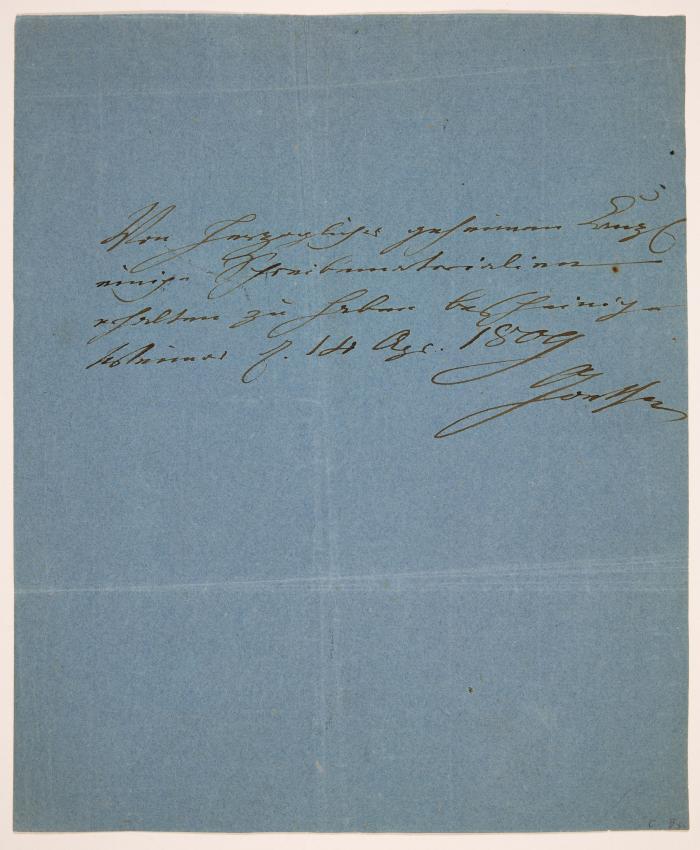 Von Herzoglicher geheimen Canzl
einige Schreibmaterialien
erhalten zu haben bescheinige
Weimar d. 14 Apr. 1809
Goethe